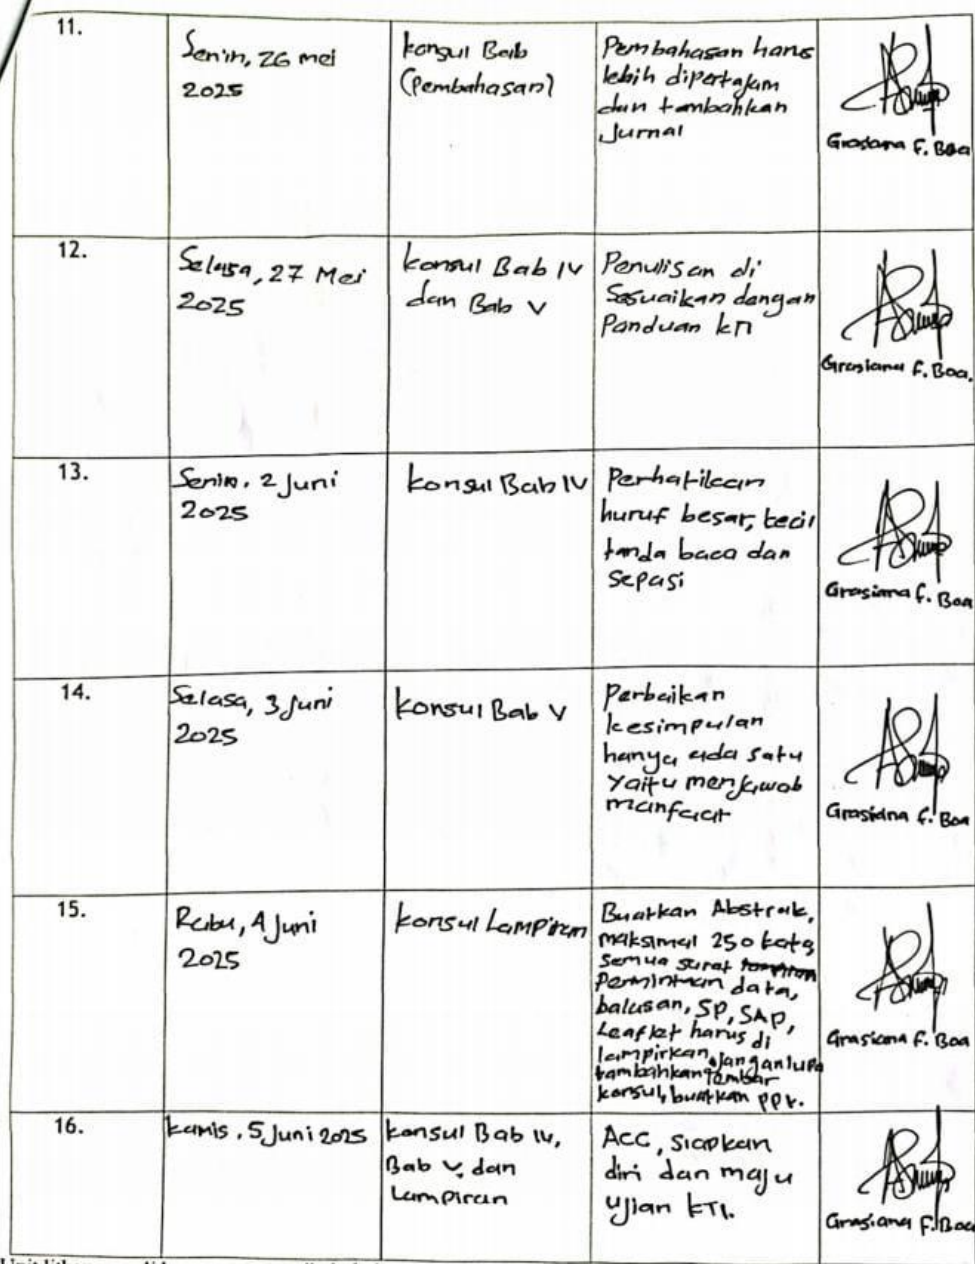 11.
Senin, 26 mei
2025
konsul Bab
(Pembahasan)
Pembahasan harus
lebih dipertajam
dan tambahkan
Jurnal
Grasiana F. Boa
12.
Selasa, 27 Mei
2025
konsul Bab IV
dan Bab V
Penulisan di
Sesuaikan dengan
Panduan KTI
Grasiana F. Boa.
13.
Senin, 2 Juni
2025
konsul Bab IV
Perhatikan
huruf besar, kecil
tanda baca dan
sepasi
Grasiana F. Boa
14.
Selasa, 3 Juni
2025
konsul Bab V
Perbaikan
kesimpulan
hanya ada satu
yaitu menjawab
manfaat
Grasiana F. Boa
15.
Rabu, 4 Juni
2025
konsul Lampiran
Buatkan Abstrak,
maksimal 250 kata,
semua surat
Permintaan data,
balasan, SP, SAP,
Leaflet harus di
lampirkan, jangan lupa
tambahkan lembar
konsul, buatkan ppt.
Grasiana F. Boa
16.
kamis, 5 Juni 2025
konsul Bab IV,
Bab V, dan
Lampiran
ACC, siapkan
diri dan maju
ujian KTI.
Grasiana F. Boa